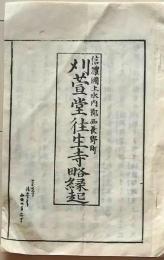 信濃國上水内郡西長野町
刈萱堂往生寺略縁起